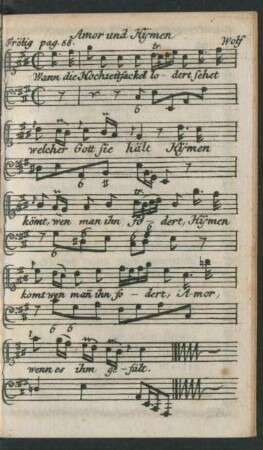 Amor und Hÿmen
Frölig pag. 66. Wolf
tr.
Wann die Hochzeitfackel lo- dert sehet
6
welcher Gott sie hält Hÿmen
6 6 #
kömt, wen man ihn fo- dert, Hÿmen
6 6
komt wen man̄ ihn fo- dert, Amor,
6 6
wenn es ihm ge- fält.